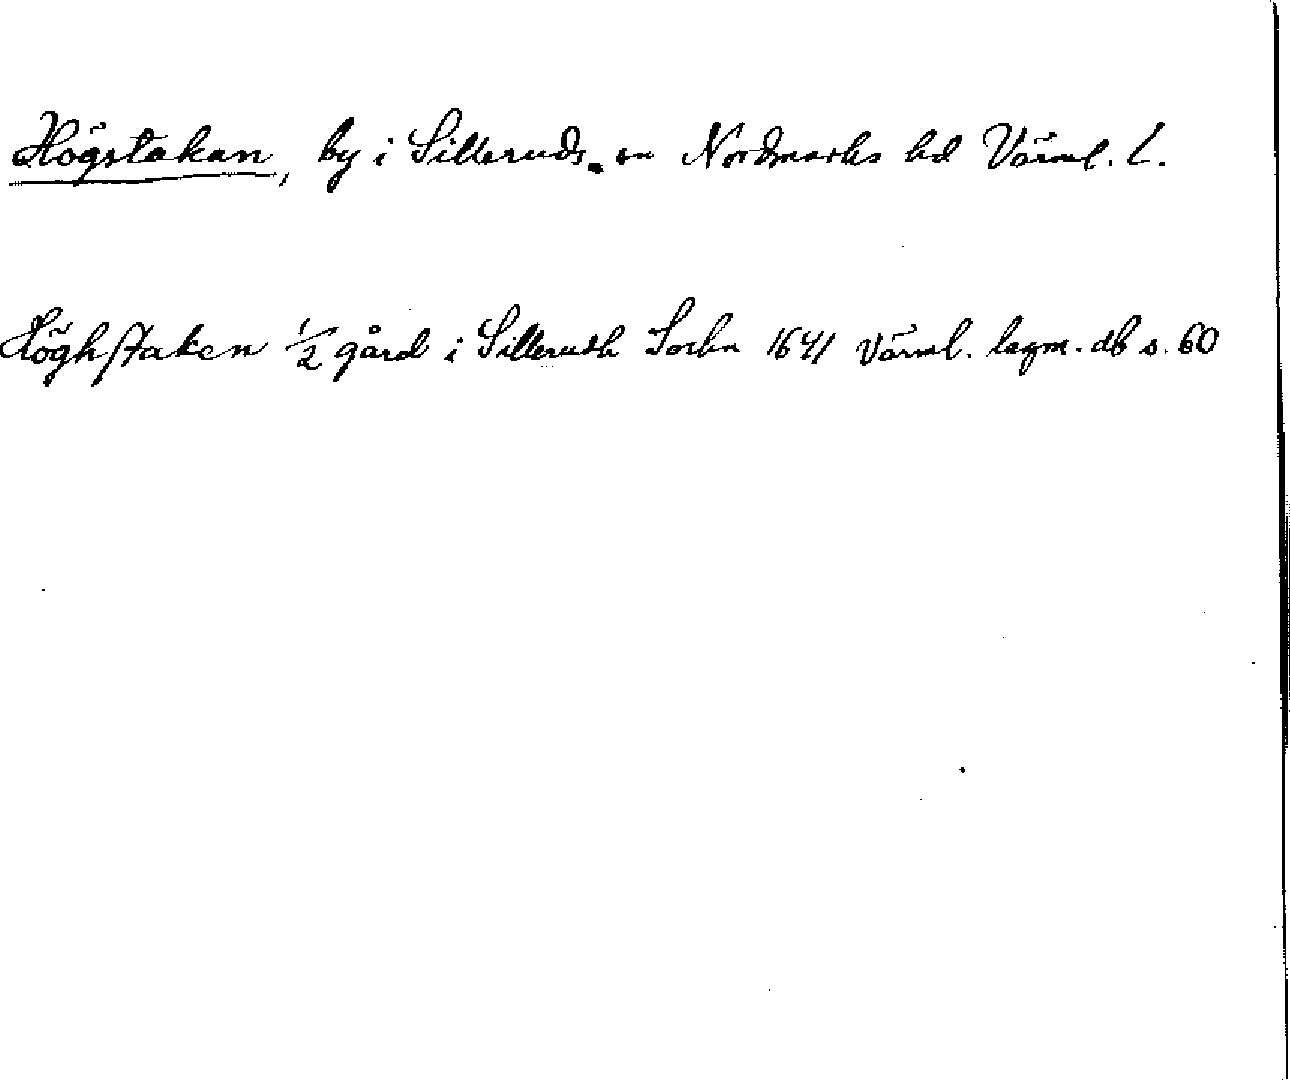 Högstakan, by i Silleruds sn Nordmarks hd Värml. l.
Höghstaken 1/2 gård i Sillerudh Sochn 1641 Värml. lagm. db s. 60